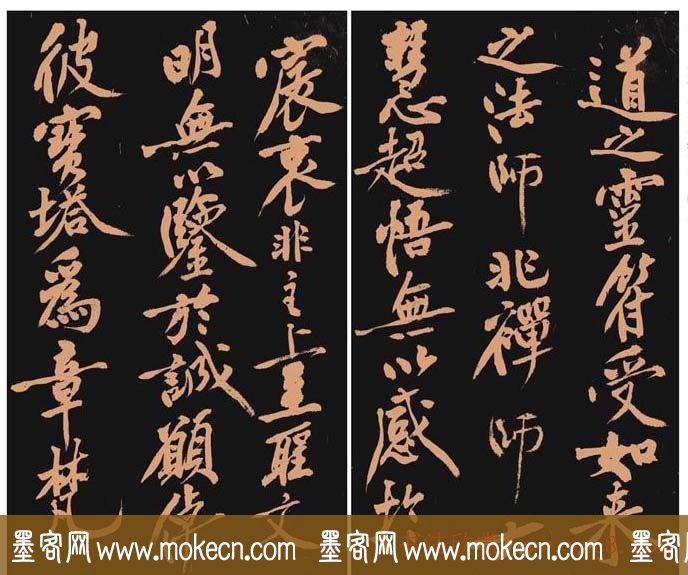 道之靈符受如来
之法師非禪師大
慧超悟無以感於
宸衷非主上至聖文
明無以鑒於誠願倬
彼寶塔爲章梵
墨客网 www.mokecn.com 墨客网 www.mokecn.com